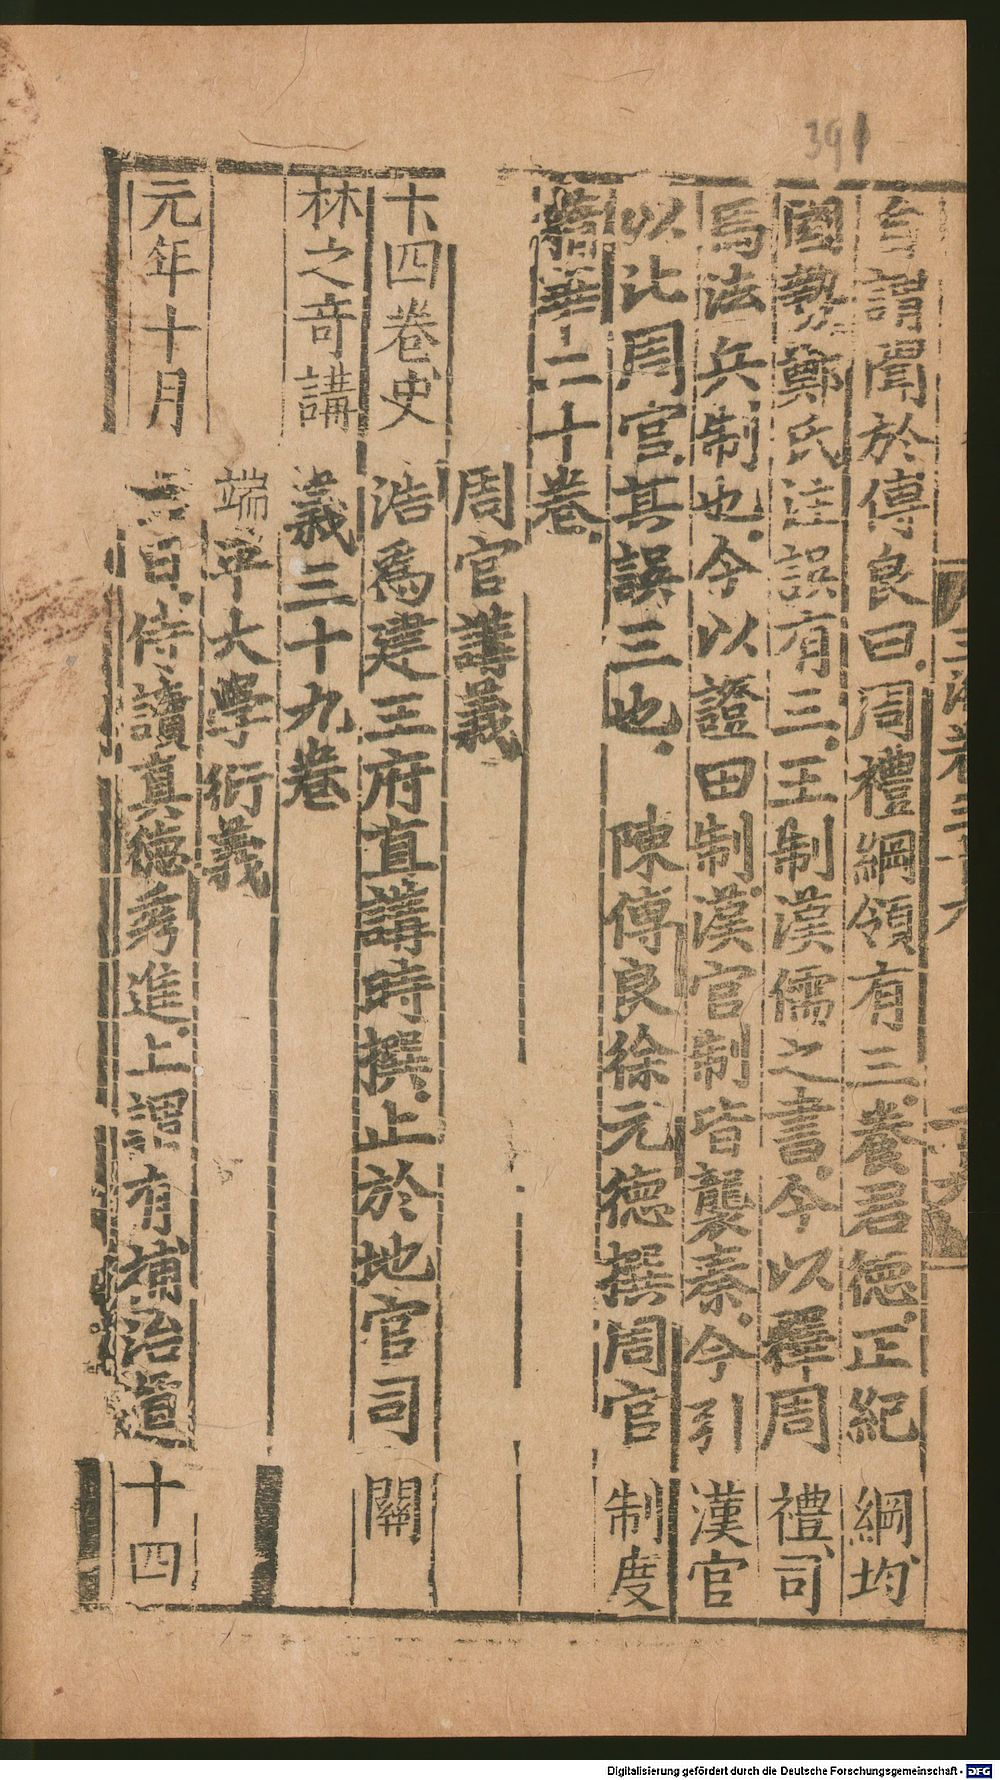 391
嘗謂聞於傅良曰周禮綱領有三養君德正紀綱均
國勢鄭氏注誤有三王制漢儒之書今以釋周禮司
馬法兵制也今以證田制漢官制皆襲秦今引漢官
以比周官其誤三也 陳傅良徐元德撰周官制度
精華二十卷
周官講義
十四卷史浩爲建王府直講時撰止於地官司關
林之奇講義三十九卷
端平大學衍義
元年十月 日侍讀真德秀進上謂有補治道十四
Digitalisierung gefördert durch die Deutsche Forschungsgemeinschaft - DFG